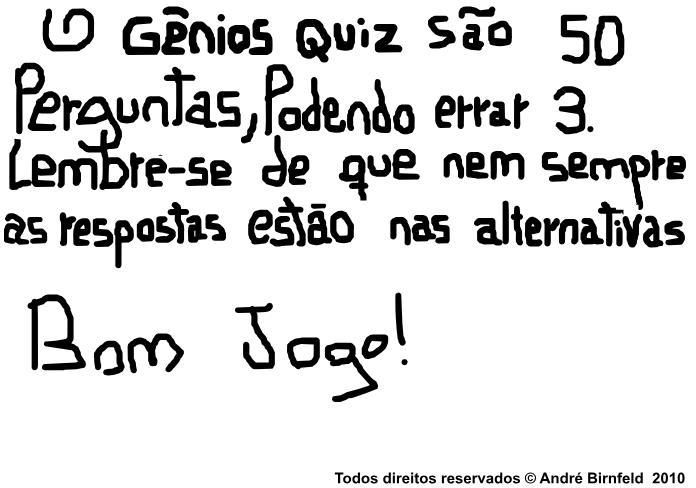 O Gênios Quiz são 50
Perguntas, Podendo errar 3.
Lembre-se de que nem sempre
as respostas estão nas alternativas
Bom Jogo!
Todos direitos reservados © André Birnfeld 2010